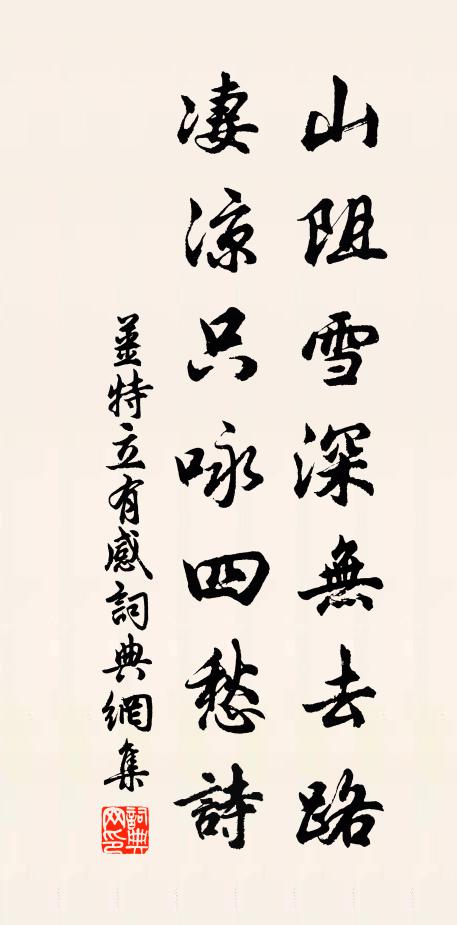 山阻雪深無去路
凄涼只咏四愁詩
姜特立有感詞典網集
詞典網印